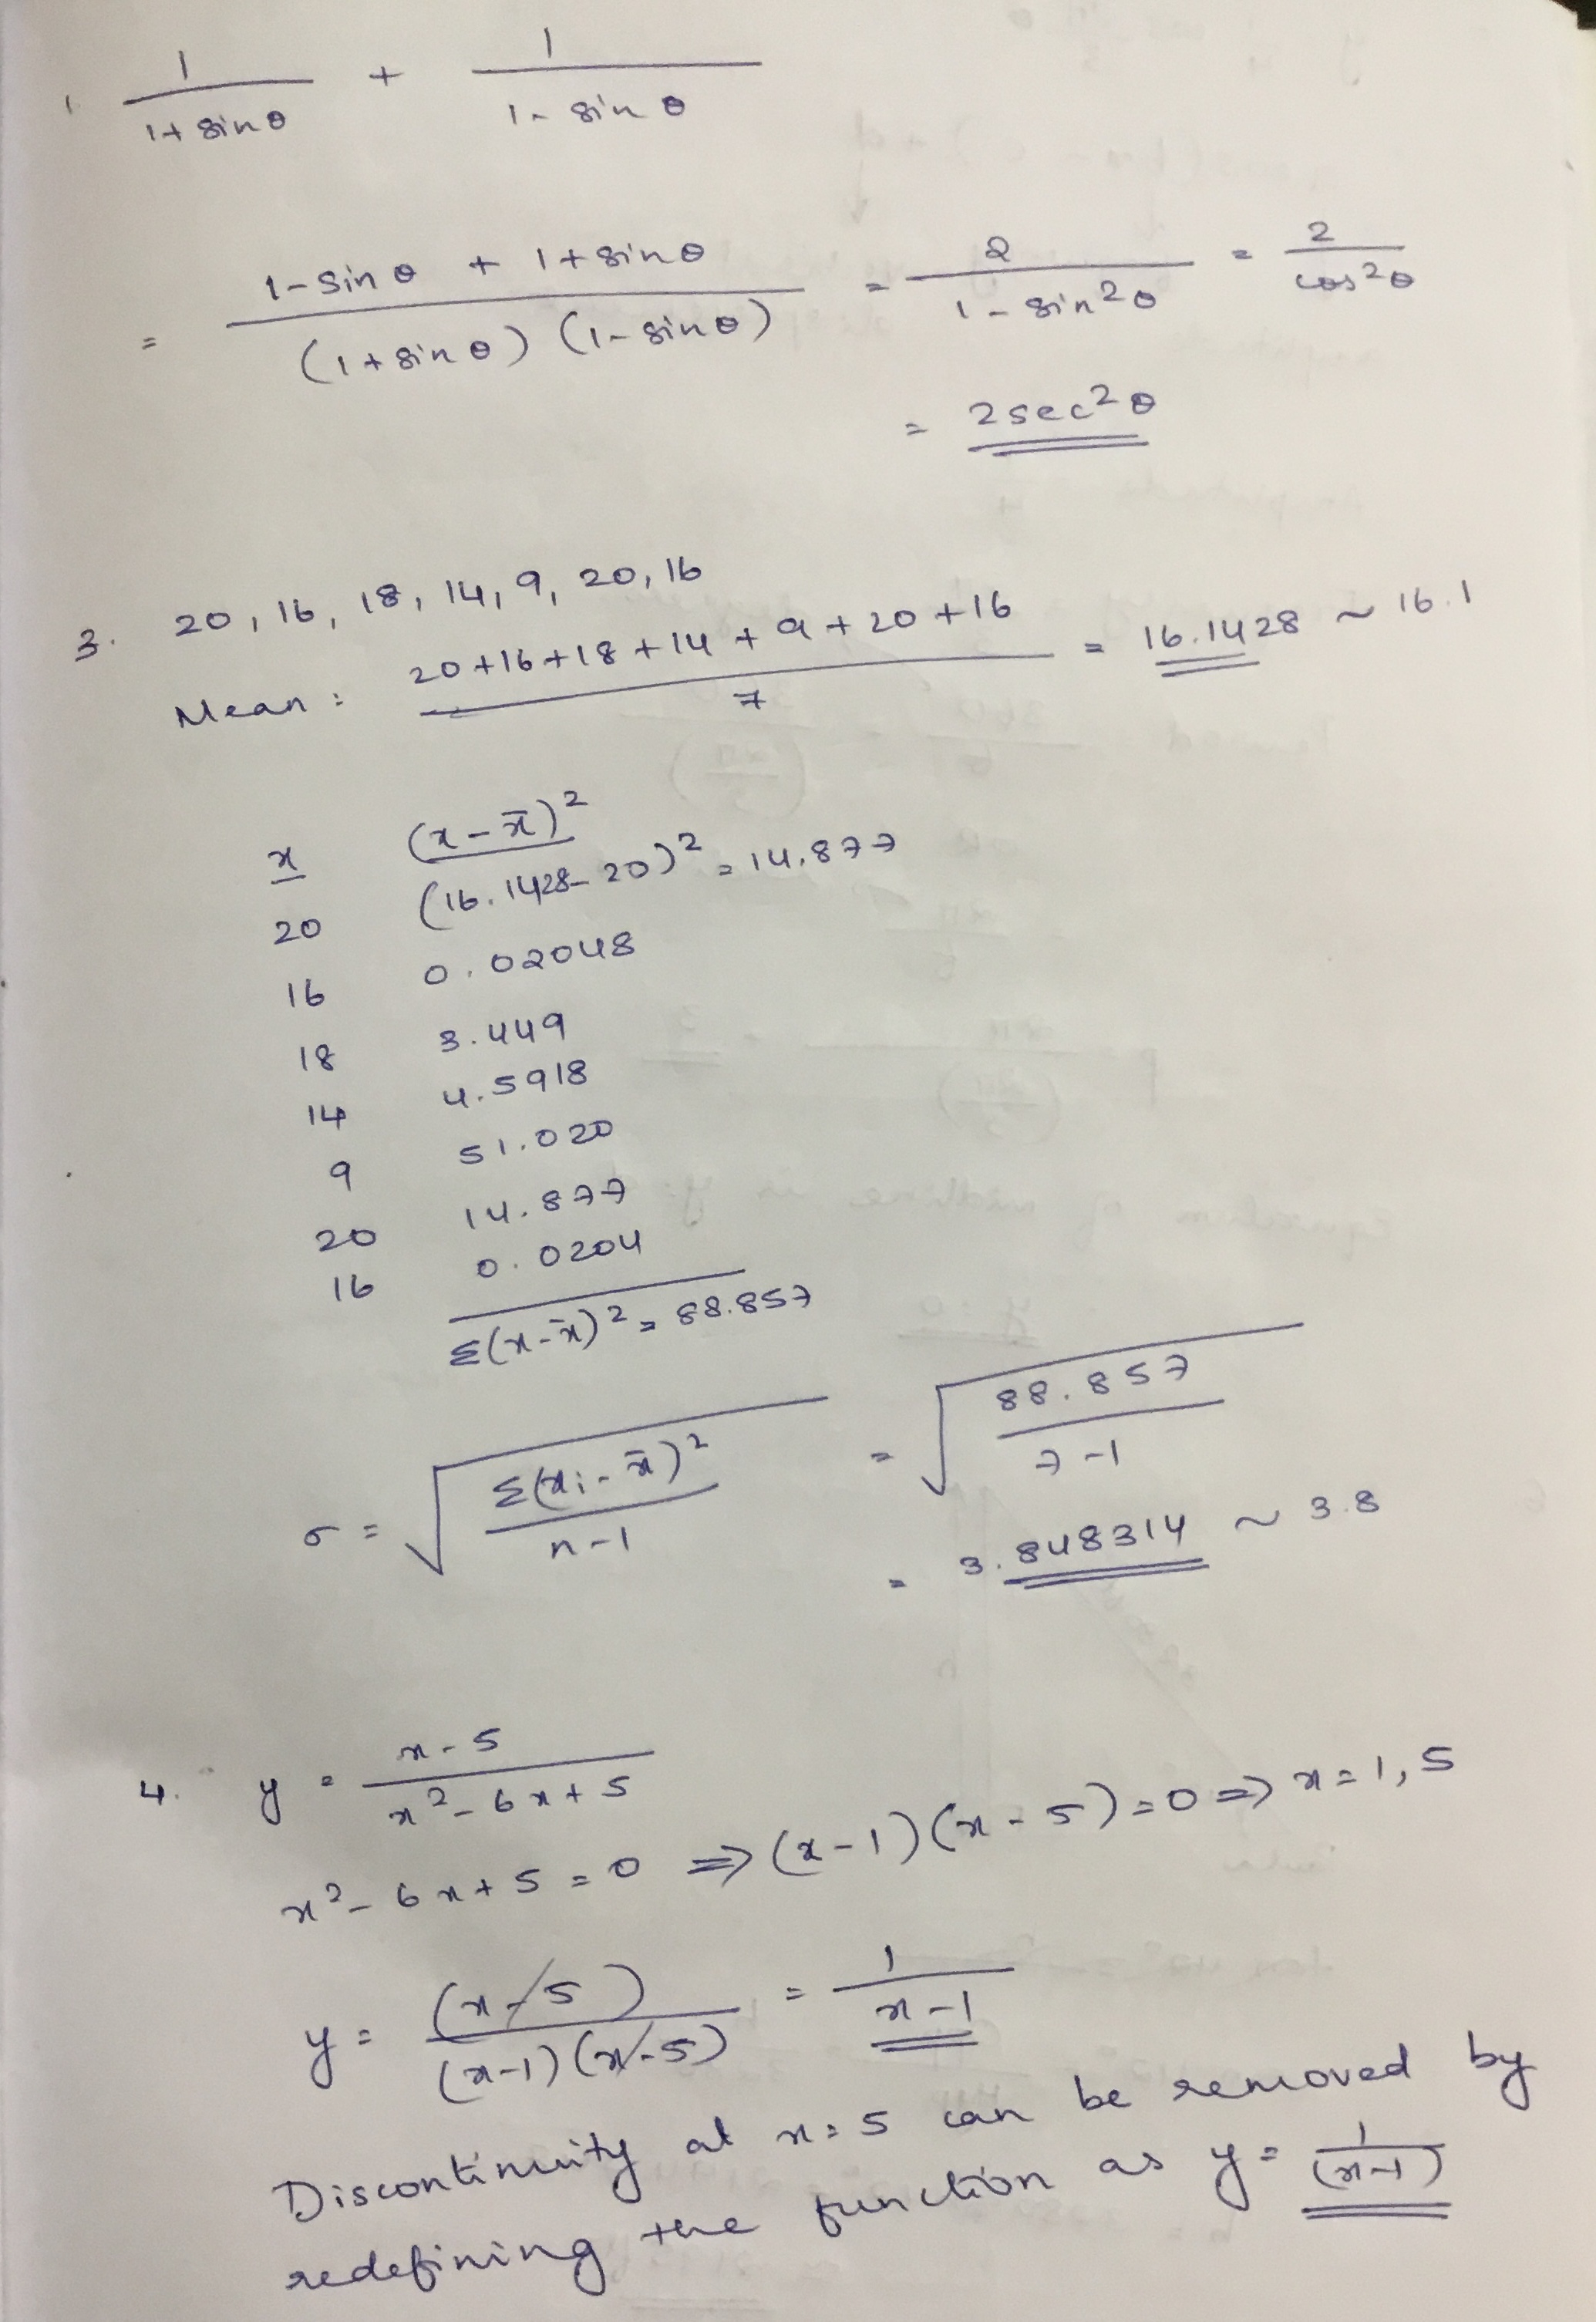 1. 1/(1+sinθ) + 1/(1-sinθ)
= (1-sinθ + 1+sinθ)/((1+sinθ)(1-sinθ)) = 2/(1-sin²θ) = 2/cos²θ
= 2sec²θ
3. 20, 16, 18, 14, 9, 20, 16
Mean: (20+16+18+14+9+20+16)/7 = 16.1428 ~ 16.1
x (x-x̄)²
20 (16.1428-20)² = 14.877
16 0.02048
18 3.449
14 4.5918
9 51.020
20 14.877
16 0.0204
Σ(x-x̄)² = 88.857
σ = √(Σ(xᵢ-x̄)²/(n-1)) = √(88.857/(7-1))
= 3.848314 ~ 3.8
4. y = (x-5)/(x²-6x+5)
x²-6x+5=0 ⇒ (x-1)(x-5)=0 ⇒ x=1,5
y = (x-5)/((x-1)(x-5)) = 1/(x-1)
Discontinuity at x=5 can be removed by
redefining the function as y = 1/(x-1)